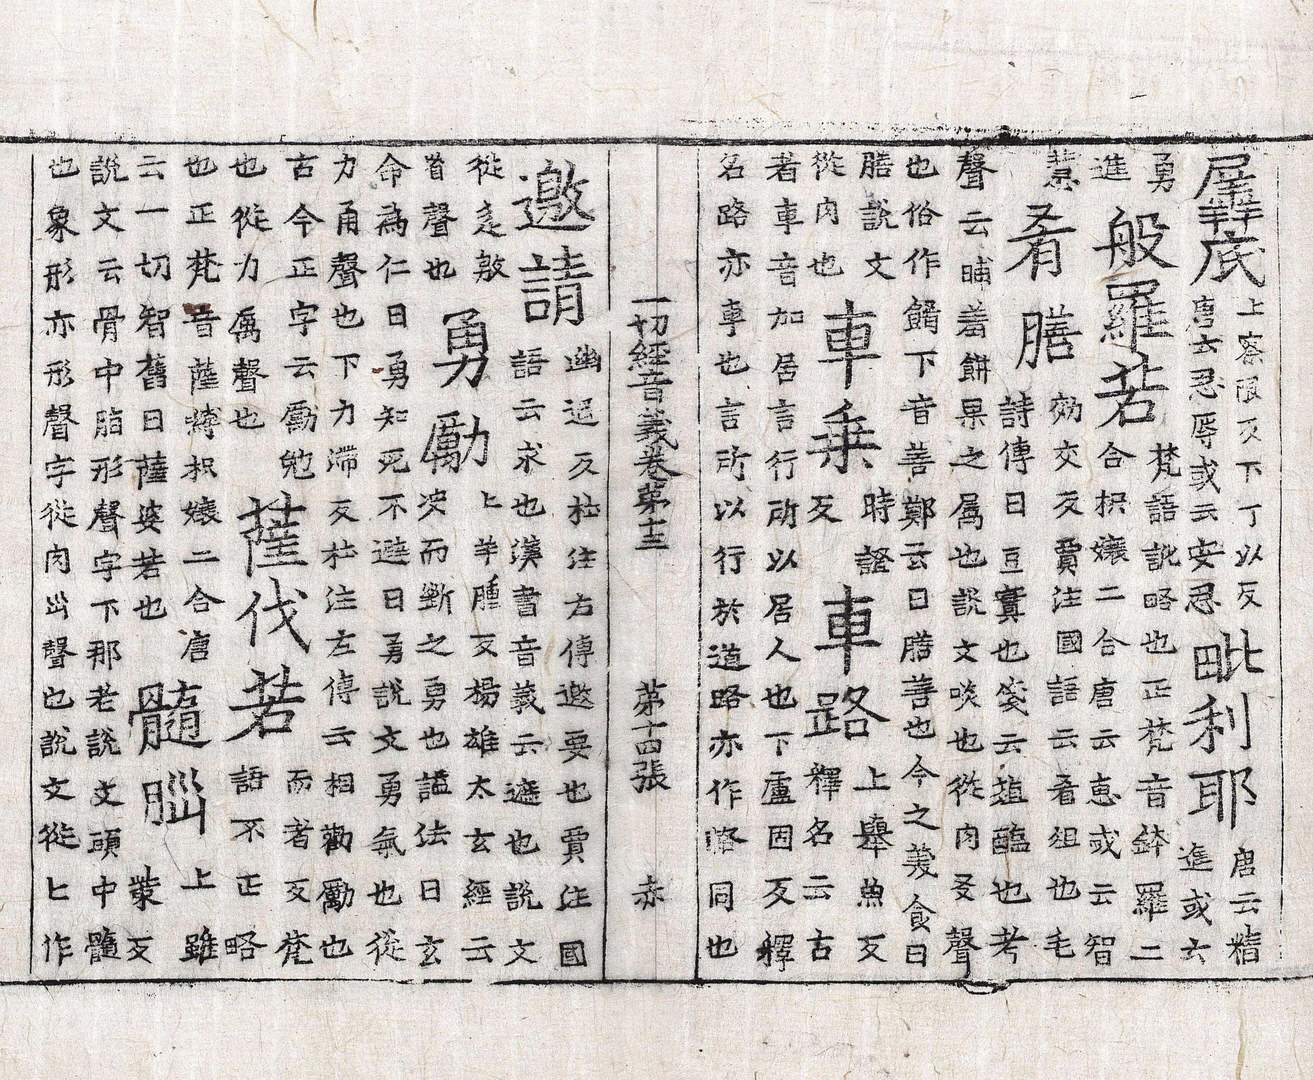 羼底 上察限反下丁以反 唐云忍辱或云安忍 毗利耶 唐云精 進或云
勇 進 般羅若 梵語訛略也正梵音鉢羅二 合枳孃二合唐云惠或云智
慧 肴膳 効交反賈注國語云肴俎也毛 詩傳曰豆實也箋云葅醢也考
聲云晡羞餅果之屬也說文啖也從肉爻聲
也俗作餚下音善鄭云曰膳善也今之羡食曰
膳說文 從肉也 車乗 時證 反 車路 上轝魚反 釋名云古
者車音加居言行所以居人也下盧固反釋
名路亦車也言所以行於道路亦作輅同也
一切經音義卷第十三 第十四張 亦
邀請 幽迢反杜注方傳邀要也賈注國 語云求也漢書音義云遮也說文
從辵敫 省聲也 勇勵 上羊腫反楊雄太玄經云 决而斷之勇也謚法曰玄
命為仁曰勇知死不避曰勇說文勇氣也從
力甬聲也下力滯反杜注左傳云相勸勵也
古今正字云勵勉 也從力厲聲也 薩伐若 而者反梵 語不正略
也正梵音薩嚩枳孃二合唐 云一切智舊曰薩婆若也 髓腦 上雖 反
說文云骨中脂形聲字下那老說文頭中髓
也象形亦形聲字從肉𡿺聲也說文從匕作